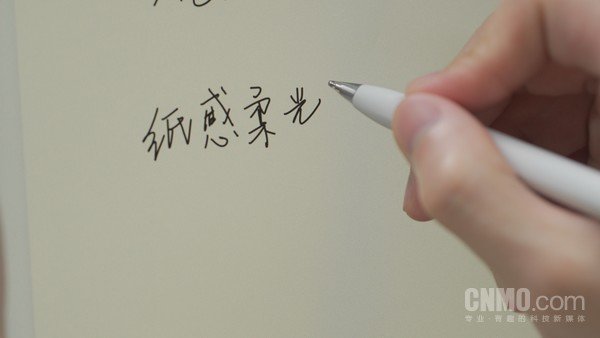 纸感柔光
CNMO.com
专业·有趣的科技新媒体